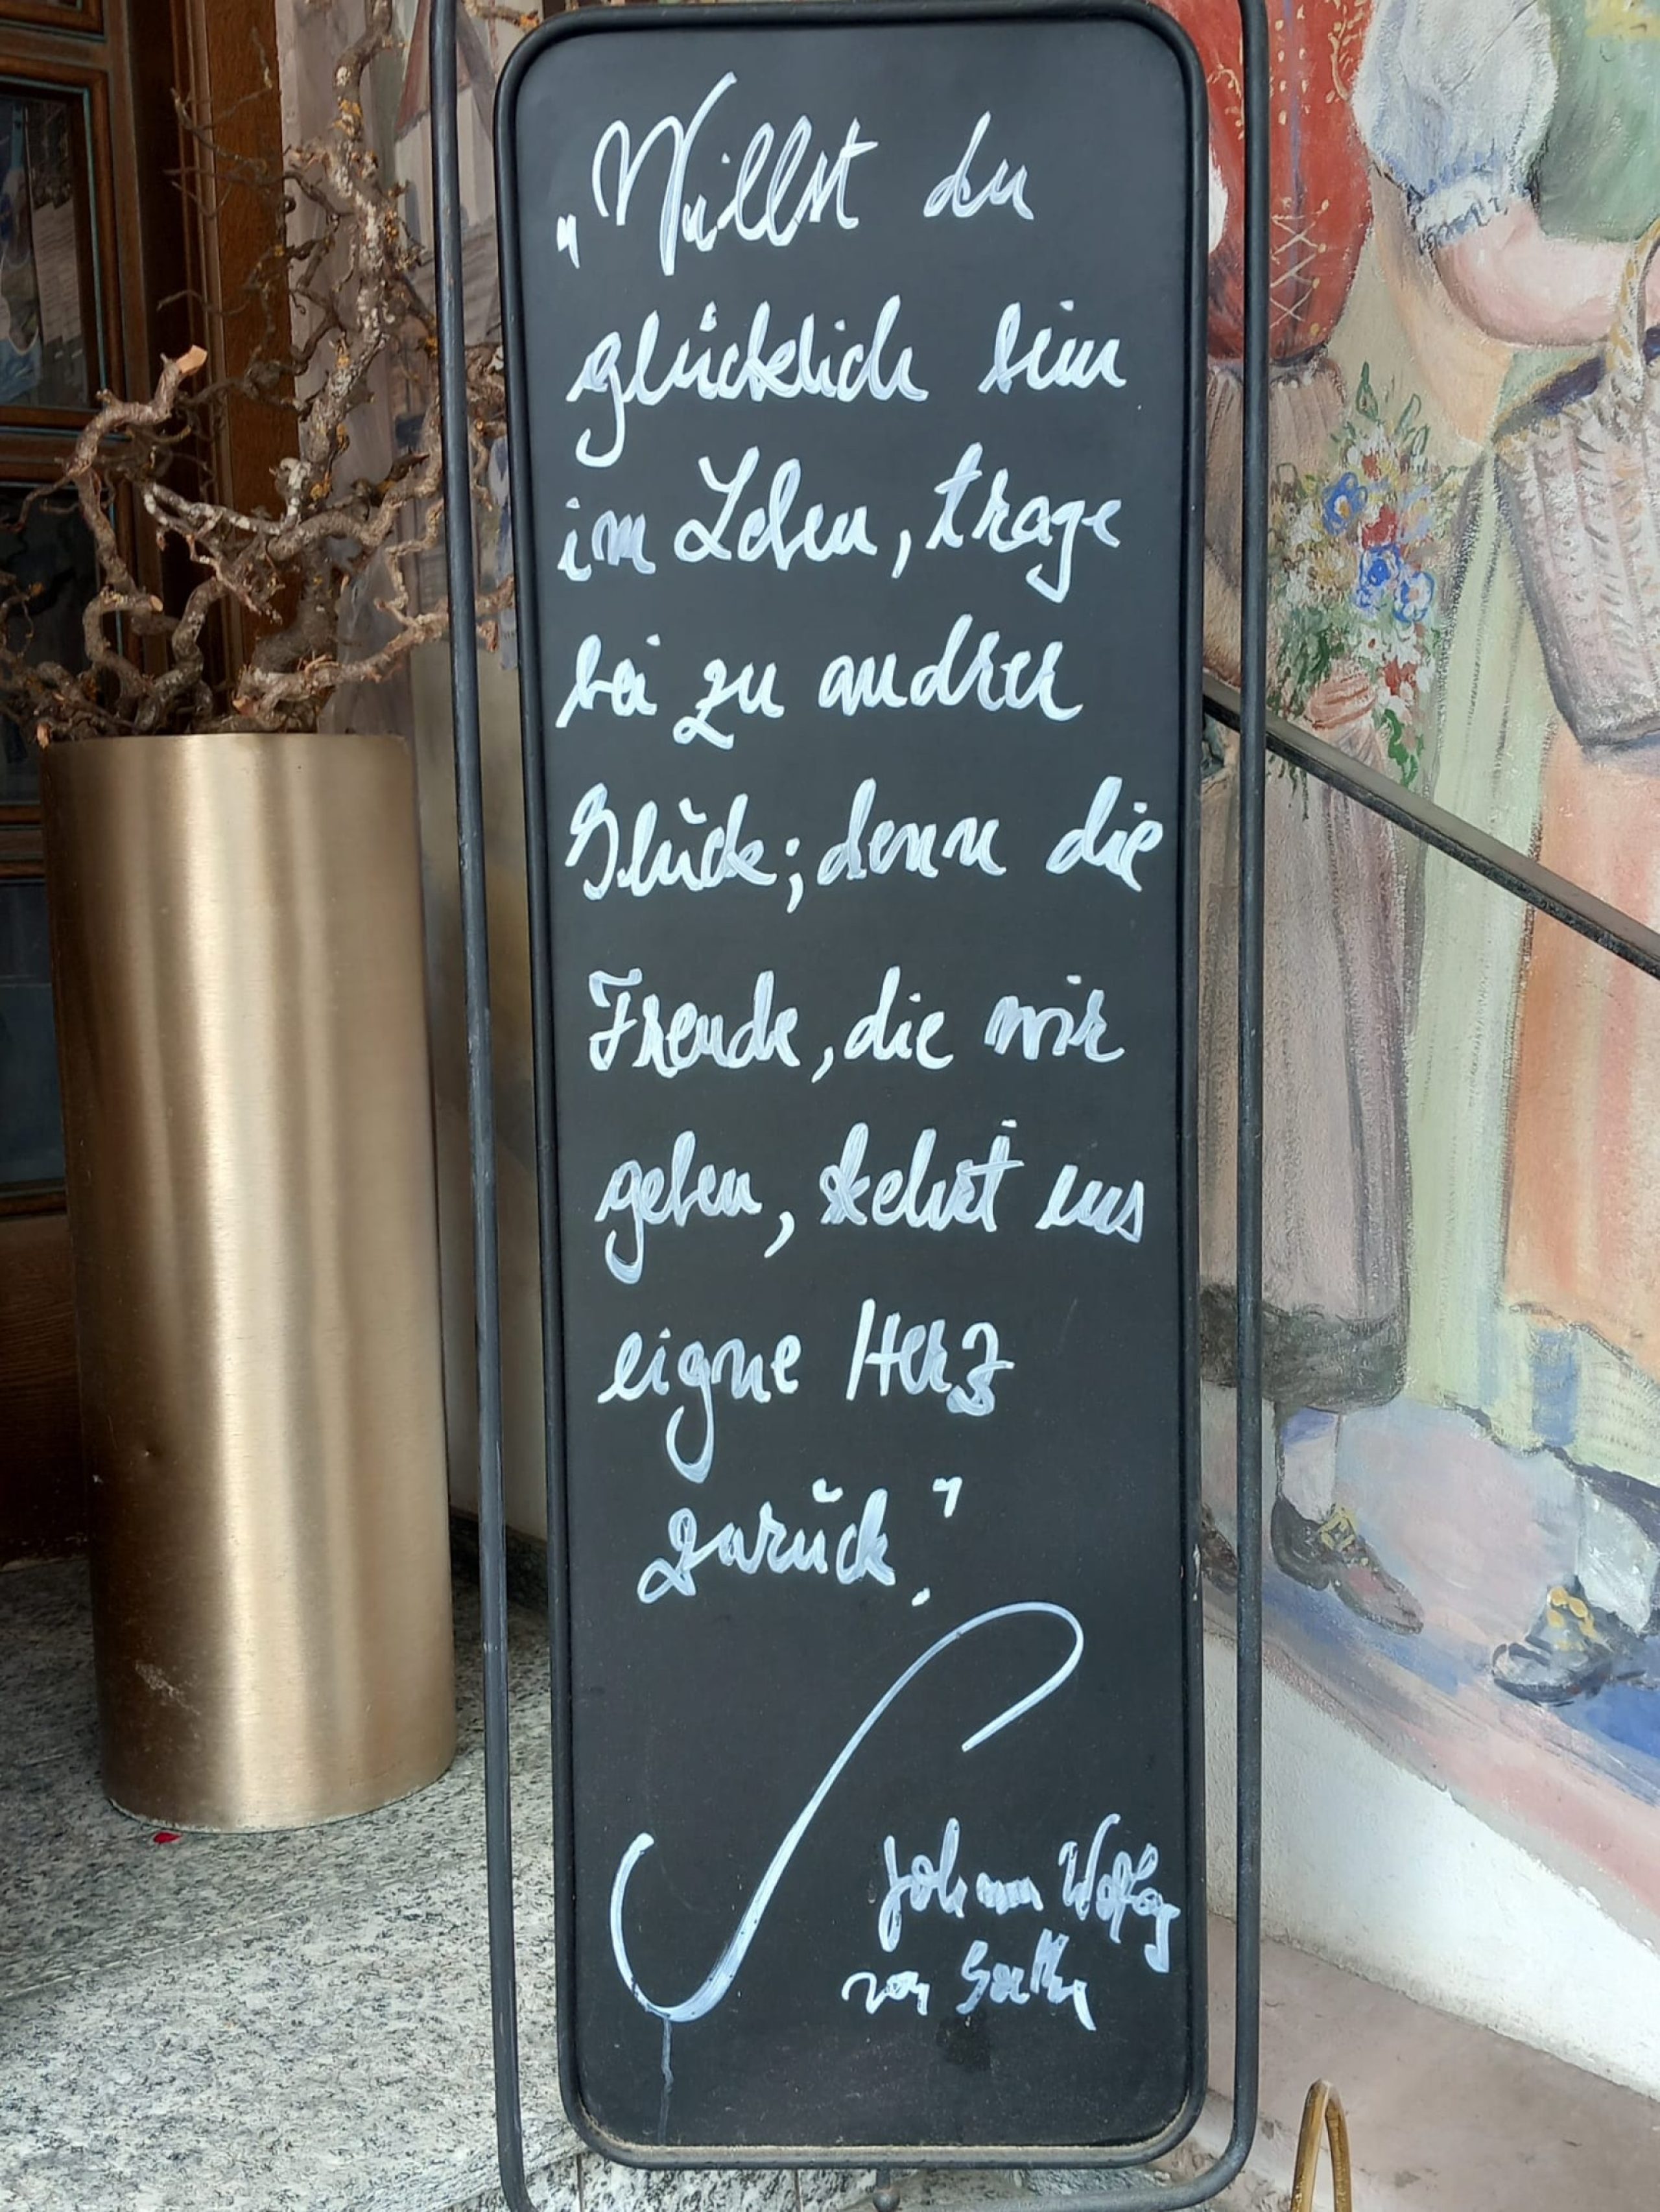 „Willst du
glücklich sein
im Leben, trage
bei zu andrer
Glück; denn die
Freude, die wir
geben, kehrt ins
eigne Herz
zurück."
Johann Wolfg
von Goethe